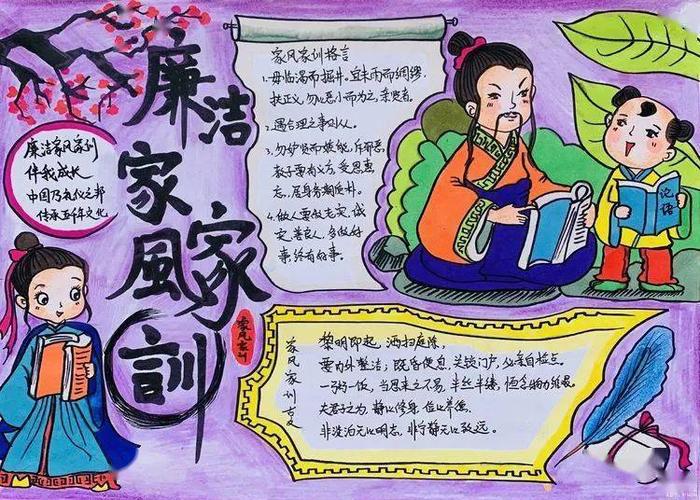 廉洁
家風
家訓
廉洁家风家训
伴我成长
中国乃礼仪之邦
传承五千年文化
家风家训格言
1.毋临渴而掘井。宜未雨而绸缪,
扶正义,勿以恶小而为之,亲贤者。
2.遇合理之事则从。
3.勿妒贤而嫉能,斥邪恶,
教子要有义方,受恩莫
忘,居身务期质朴。
4.做人要做老实,诚
实,善良人,多做好
事,终有好事。
论语
家风家训
家风家训
黎明即起,洒扫庭除,
要内外整洁;既昏便息,关锁门户,必亲自检点。
一粥一饭,当思来之不易,半丝半缕,恒念物力维艰。
夫君子之为,静以修身,俭以养德,
非淡泊无以明志,非宁静无以致远。